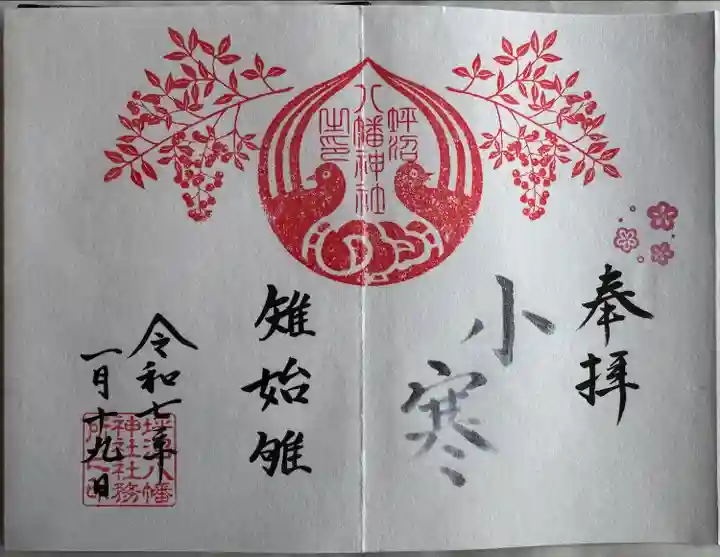 坪沼
八幡神社
之印
奉拝
小寒
雉始雊
令和七年
一月十九日
坪沼八幡
神社社務
所之印